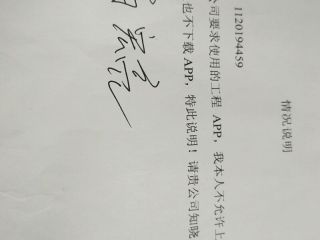 情况说明
1120194459
公司要求使用的工程 APP，我本人不允许上
也不下载 APP，特此说明！请贵公司知晓